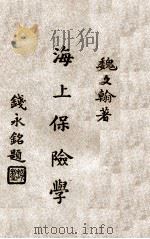 魏文翰著
海上保險學
錢永銘題
mtoou.info